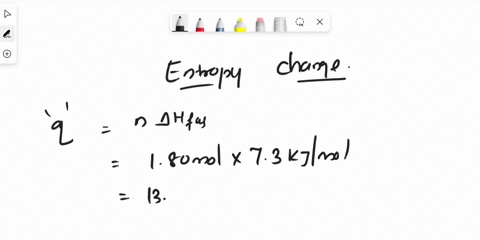 Entropy change.
'q' = n ΔHfus
= 1.80mol × 7.3 kJ/mol
= 13.